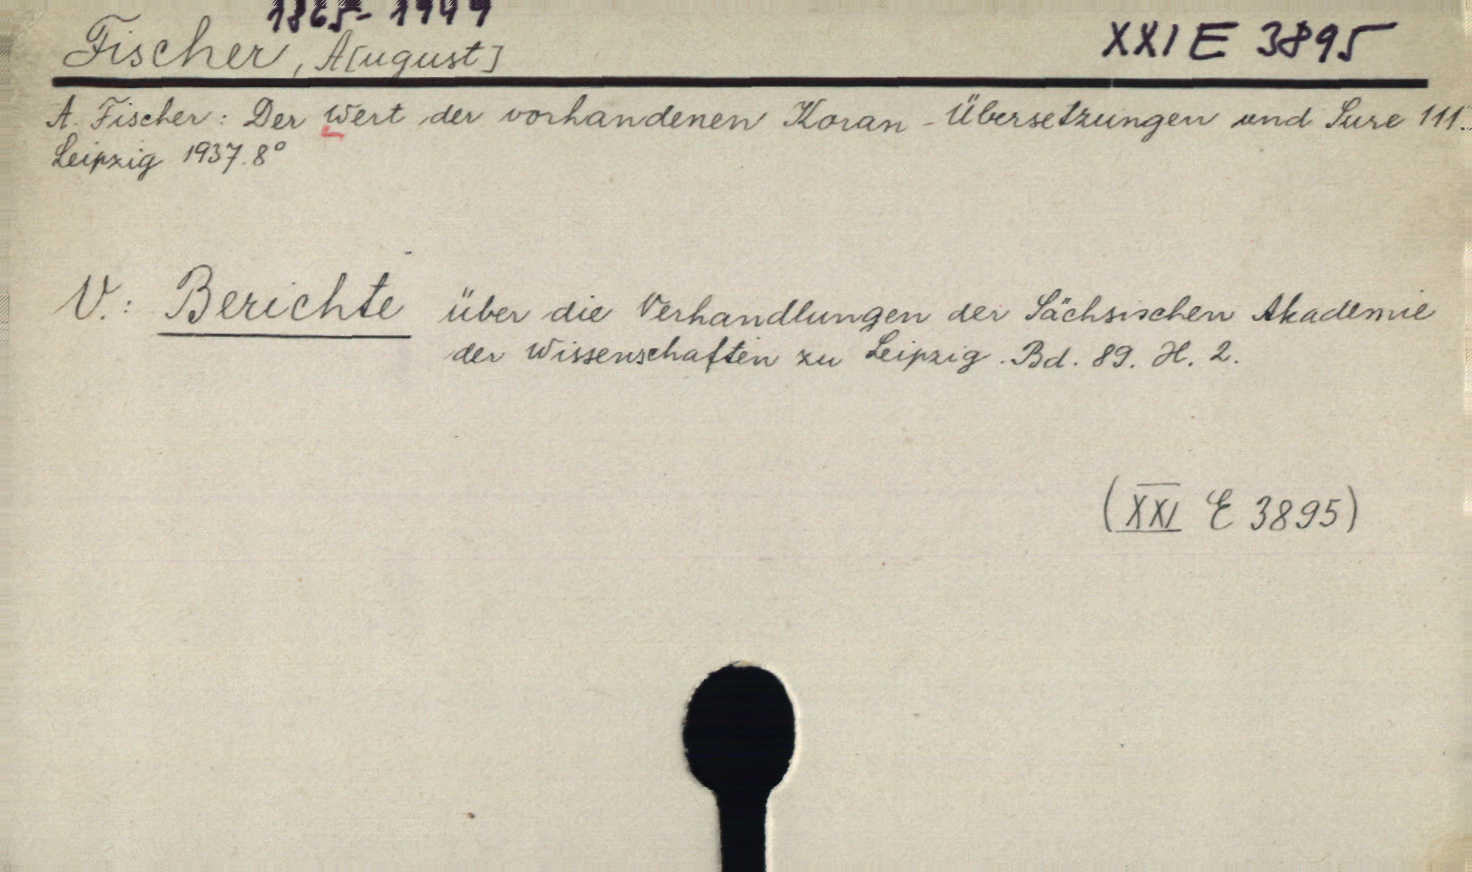 1865-1949
Fischer, A[ugust]
XXI E 3895
A. Fischer: Der Wert der vorhandenen Koran-Übersetzungen und Sure 111.
Leipzig 1937. 8°
V.: Berichte über die Verhandlungen der Sächsischen Akademie
der Wissenschaften zu Leipzig. Bd. 89. H. 2.
(XXI E 3895)